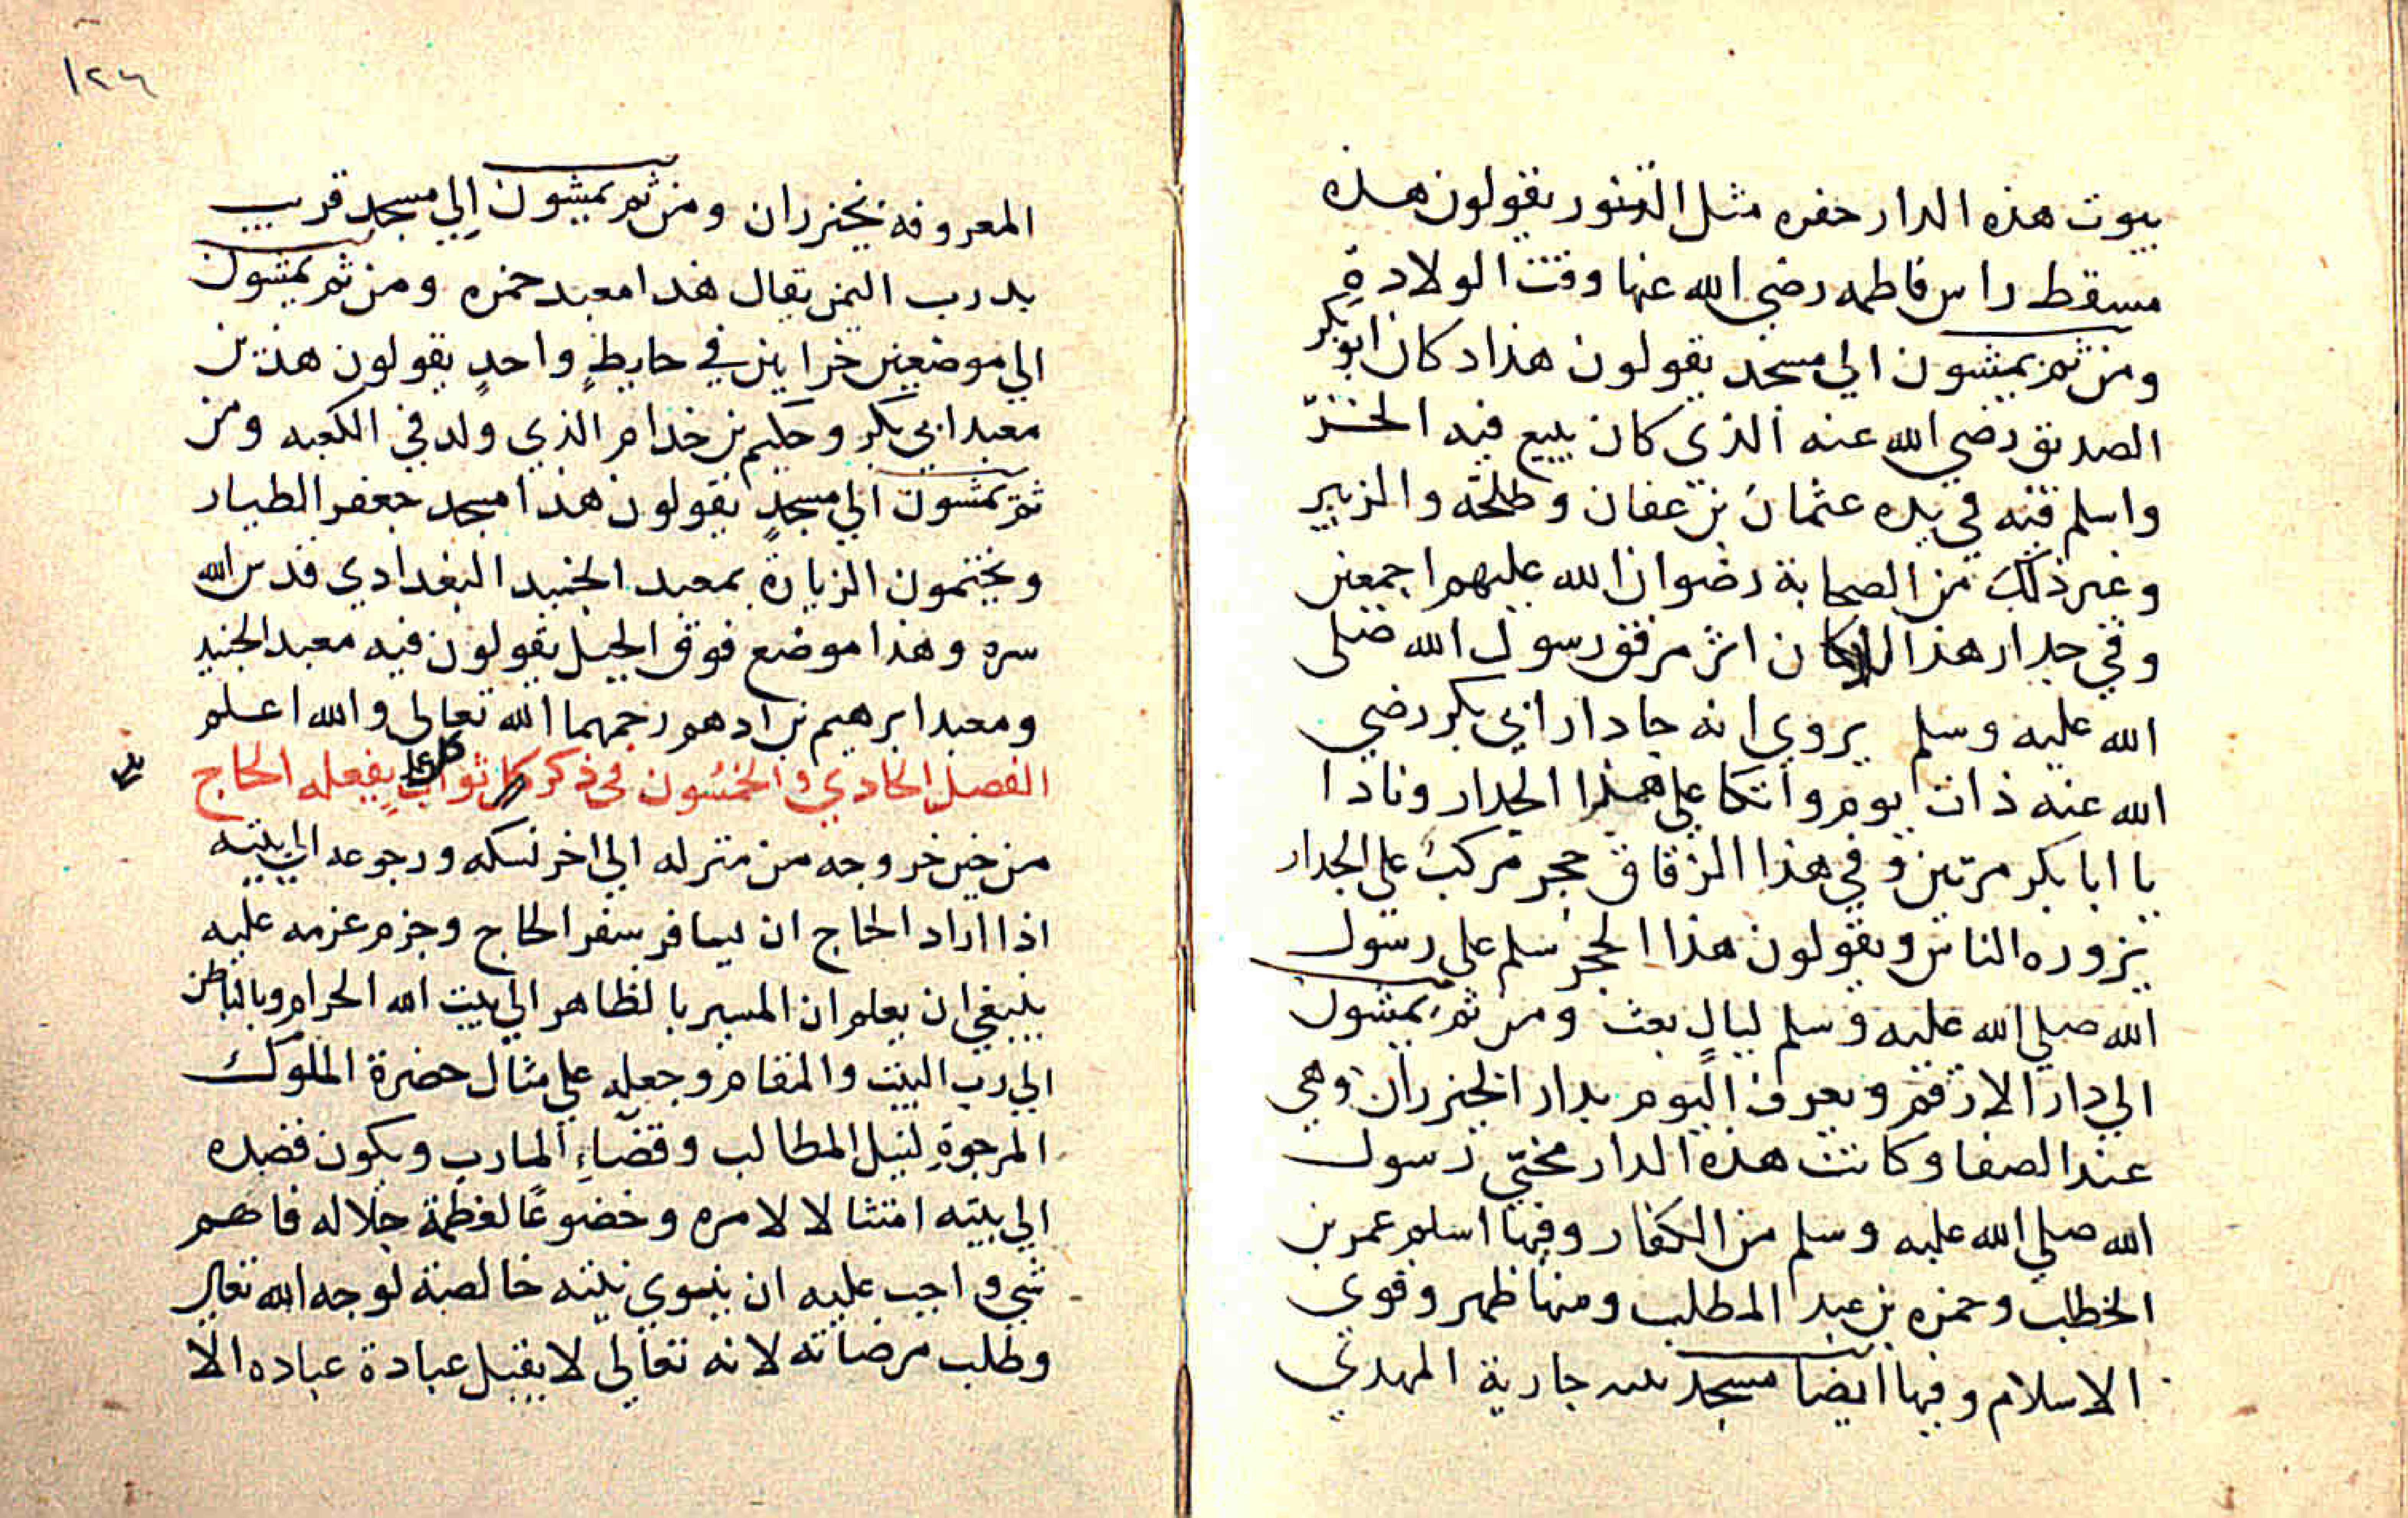 بيوت هذه الدار حفره مثل التنور يقولون هذه
مسقط راس فاطمه رضي الله عنها وقت الولادة
ومن ثم يمشون الي مسجد يقولون هذا دكان ابو بكر
الصديق رضي الله عنه الذي كان يبيع فيه الخز
واسلم فيه في يده عثمان بن عفان وطلحه والزبير
وغير ذلك من الصحابة رضوان الله عليهم اجمعين
وفي جدار هذا الدكان اثر مرفق رسول الله صلى
الله عليه وسلم يروي انه جا دار ابي بكر رضي
الله عنه ذات يوم واتكا علي هذا الجدار ونادا
يا ابا بكر مرتين وفي هذا الزقاق حجر مركب على الجدار
يزوره الناس ويقولون هذا الحجر سلم على رسول
الله صلي الله عليه وسلم ليالٍ بعث ومن ثم يمشون
الي دار الارقم ويعرف اليوم بدار الخيزران وهي
عند الصفا وكانت هذه الدار مختبي رسول
الله صلي الله عليه وسلم من الكفار وفيها اسلم عمر بن
الخطاب وحمزه بن عبد المطلب ومنها ظهر وقوي
الاسلام وفيها ايضا مسجد بنته جارية المهدي
١٢٦
المعروفه بخيزران ومن ثم يمشون إلي مسجد قريب
بدرب اليمن يقال هذا معبد حمزه ومن ثم يمشون
الي موضعين خرابين في حايطٍ واحدٍ يقولون هذين
معبد ابي بكر وحكيم بن خذام الذي ولد في الكعبه ومن
ثم يمشون الي مسجدٍ يقولون هذا مسجد جعفر الطيار
ويختمون الزيارة بمعبد الجنيد البغدادي قدس الله
سره وهذا موضع فوق الجبل يقولون فيه معبد الجنيد
ومعبد ابرهيم بن ادهم رحمهما الله تعالى والله اعلم
الفصل الحادي والخمسون في ذكر كل ثواب يفعله الحاج
من حين خروجه من منزله الي اخر نسكه ورجوعه الي بيته
اذا اراد الحاج ان يسافر سفر الحاج وجزم عزمه عليه
ينبغي ان يعلم ان المسير بالظاهر الي بيت الله الحرام وبالباطن
الي رب البيت والمقام وجعله علي مثال حضرة الملوك
المرجوة لنيل المطالب وقضاء المارب ويكون قصده
الي بيته امتثالا لامره وخضوعًا لعظمة جلاله فاهم
شي واجب عليه ان ينوي نيته خالصة لوجه الله تعالي
وطلب مرضاته لانه تعالي لا يقبل عبادة عباده الا